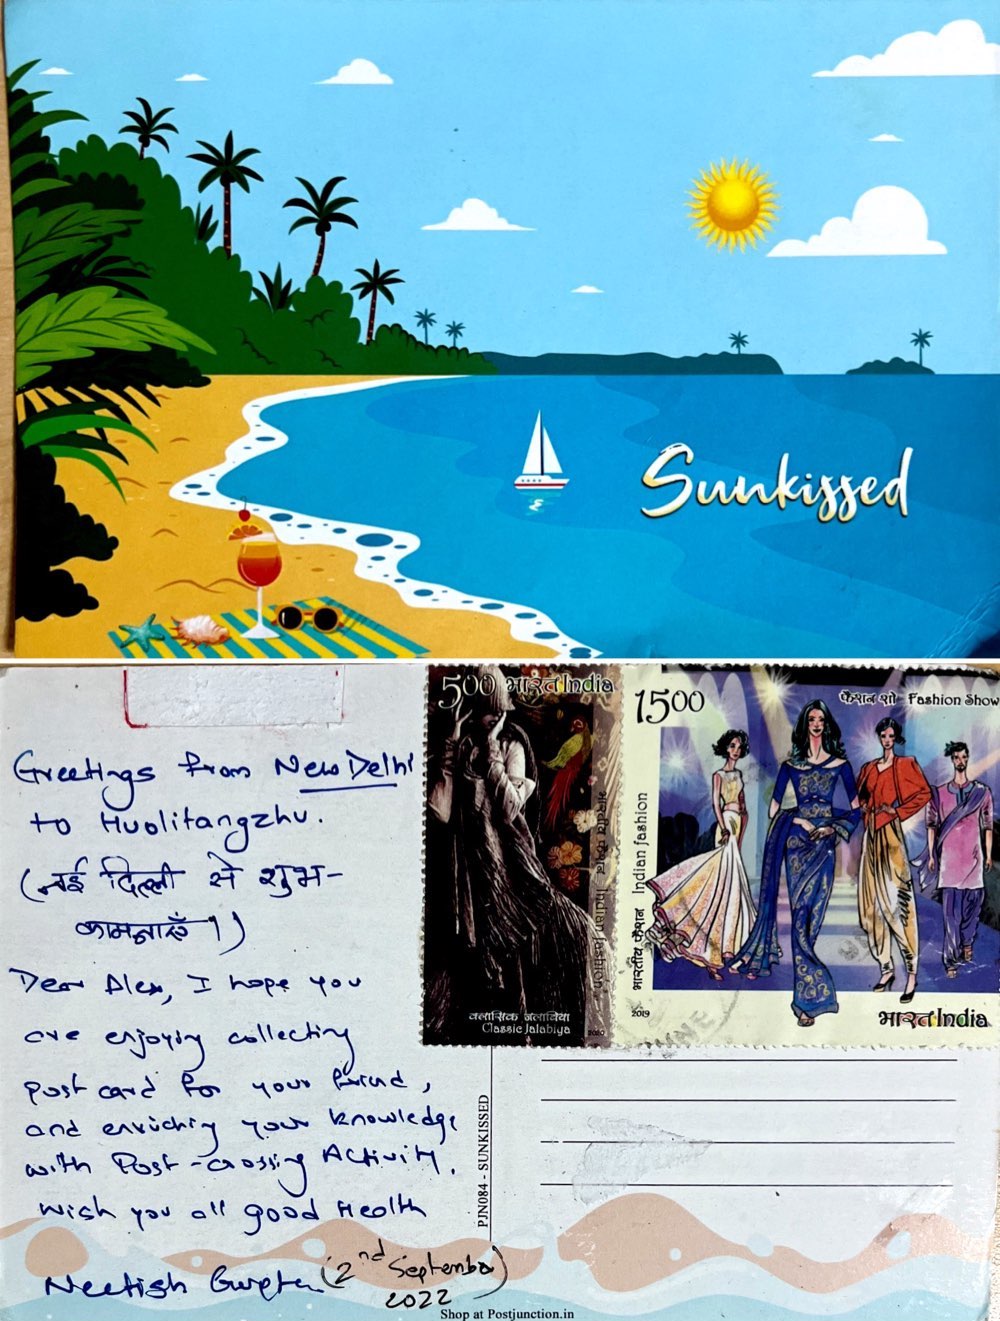 Sunkissed
Greetings from New Delhi
to Huolitangzhu.
(नई दिल्ली से शुभ-
कामनाएँ।)
Dear Alex, I hope you
are enjoying collecting
post card for your friend,
and enriching your knowledge
with Post-crossing Activity.
Wish you all good Health
Neetish Gupta (2nd September
2022)
500 भारत India
भारतीय फैशन Indian fashion
क्लासिक जलाबिया
Classic Jalabiya
2020
1500
फैशन शो Fashion Show
भारतीय फैशन Indian fashion
2019
भारत India
PJN084 - SUNKISSED
Shop at Postjunction.in